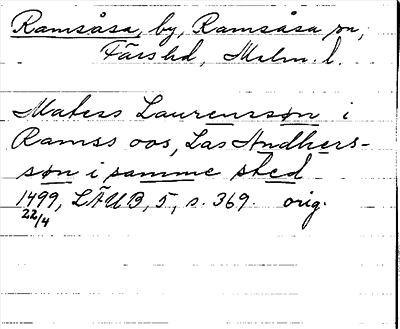 Ramsåsa, by, Ramsåsa sn,
Färs hd, Malm. l.
Matess Laurensson i
Ramss oos, Las Andhers-
søn i samme sted
1499, LÄUB, 5, s. 369. orig.
22/4